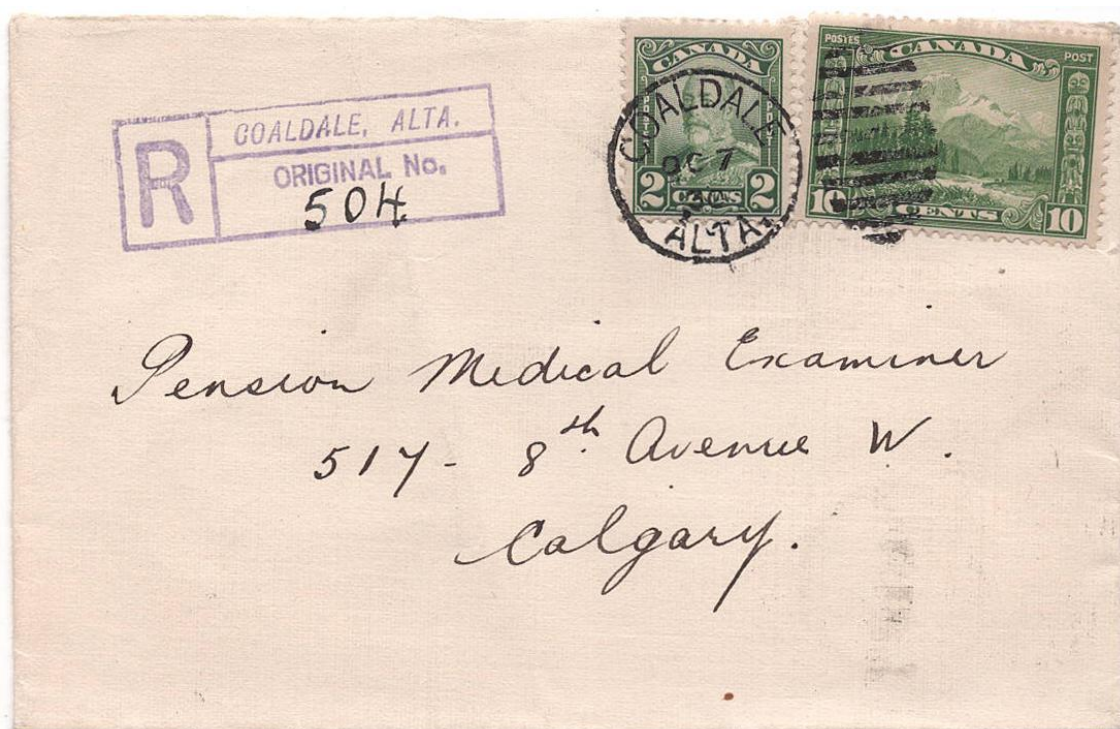 R
COALDALE, ALTA.
ORIGINAL No.
504
CANADA
2 CENTS 2
COALDALE
OC 7
30
ALTA.
POSTES CANADA POST
10 CENTS 10
Pension Medical Examiner
517 - 8th Avenue W.
Calgary.